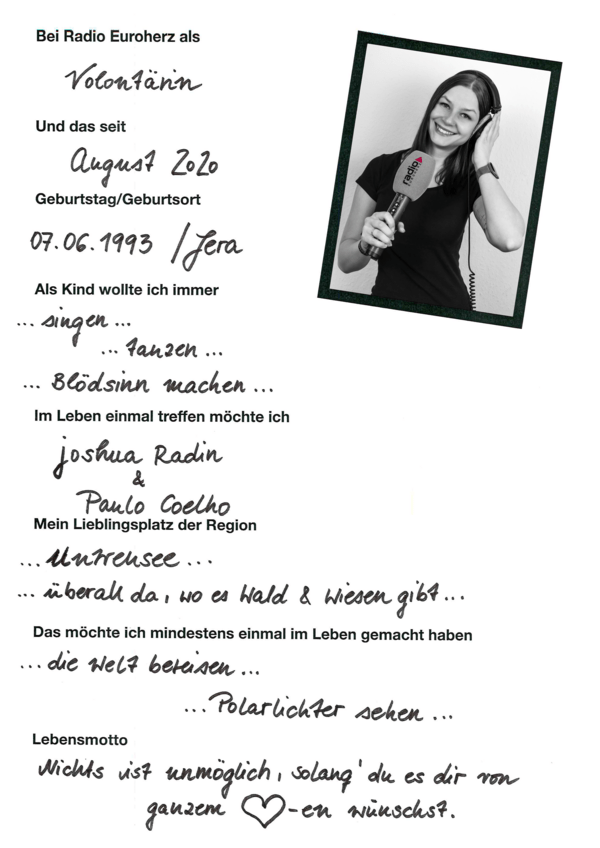 Bei Radio Euroherz als
Volontärin
Und das seit
August 2020
Geburtstag/Geburtsort
07.06.1993 / Gera
Als Kind wollte ich immer
... singen ...
... tanzen ...
... Blödsinn machen ...
Im Leben einmal treffen möchte ich
Joshua Radin
&
Paulo Coelho
Mein Lieblingsplatz der Region
... Untreusee ...
... überall da, wo es Wald & Wiesen gibt ...
Das möchte ich mindestens einmal im Leben gemacht haben
... die Welt bereisen ...
... Polarlichter sehen ...
Lebensmotto
Nichts ist unmöglich, solang' du es dir von
ganzem ♡-en wünschst.
radio